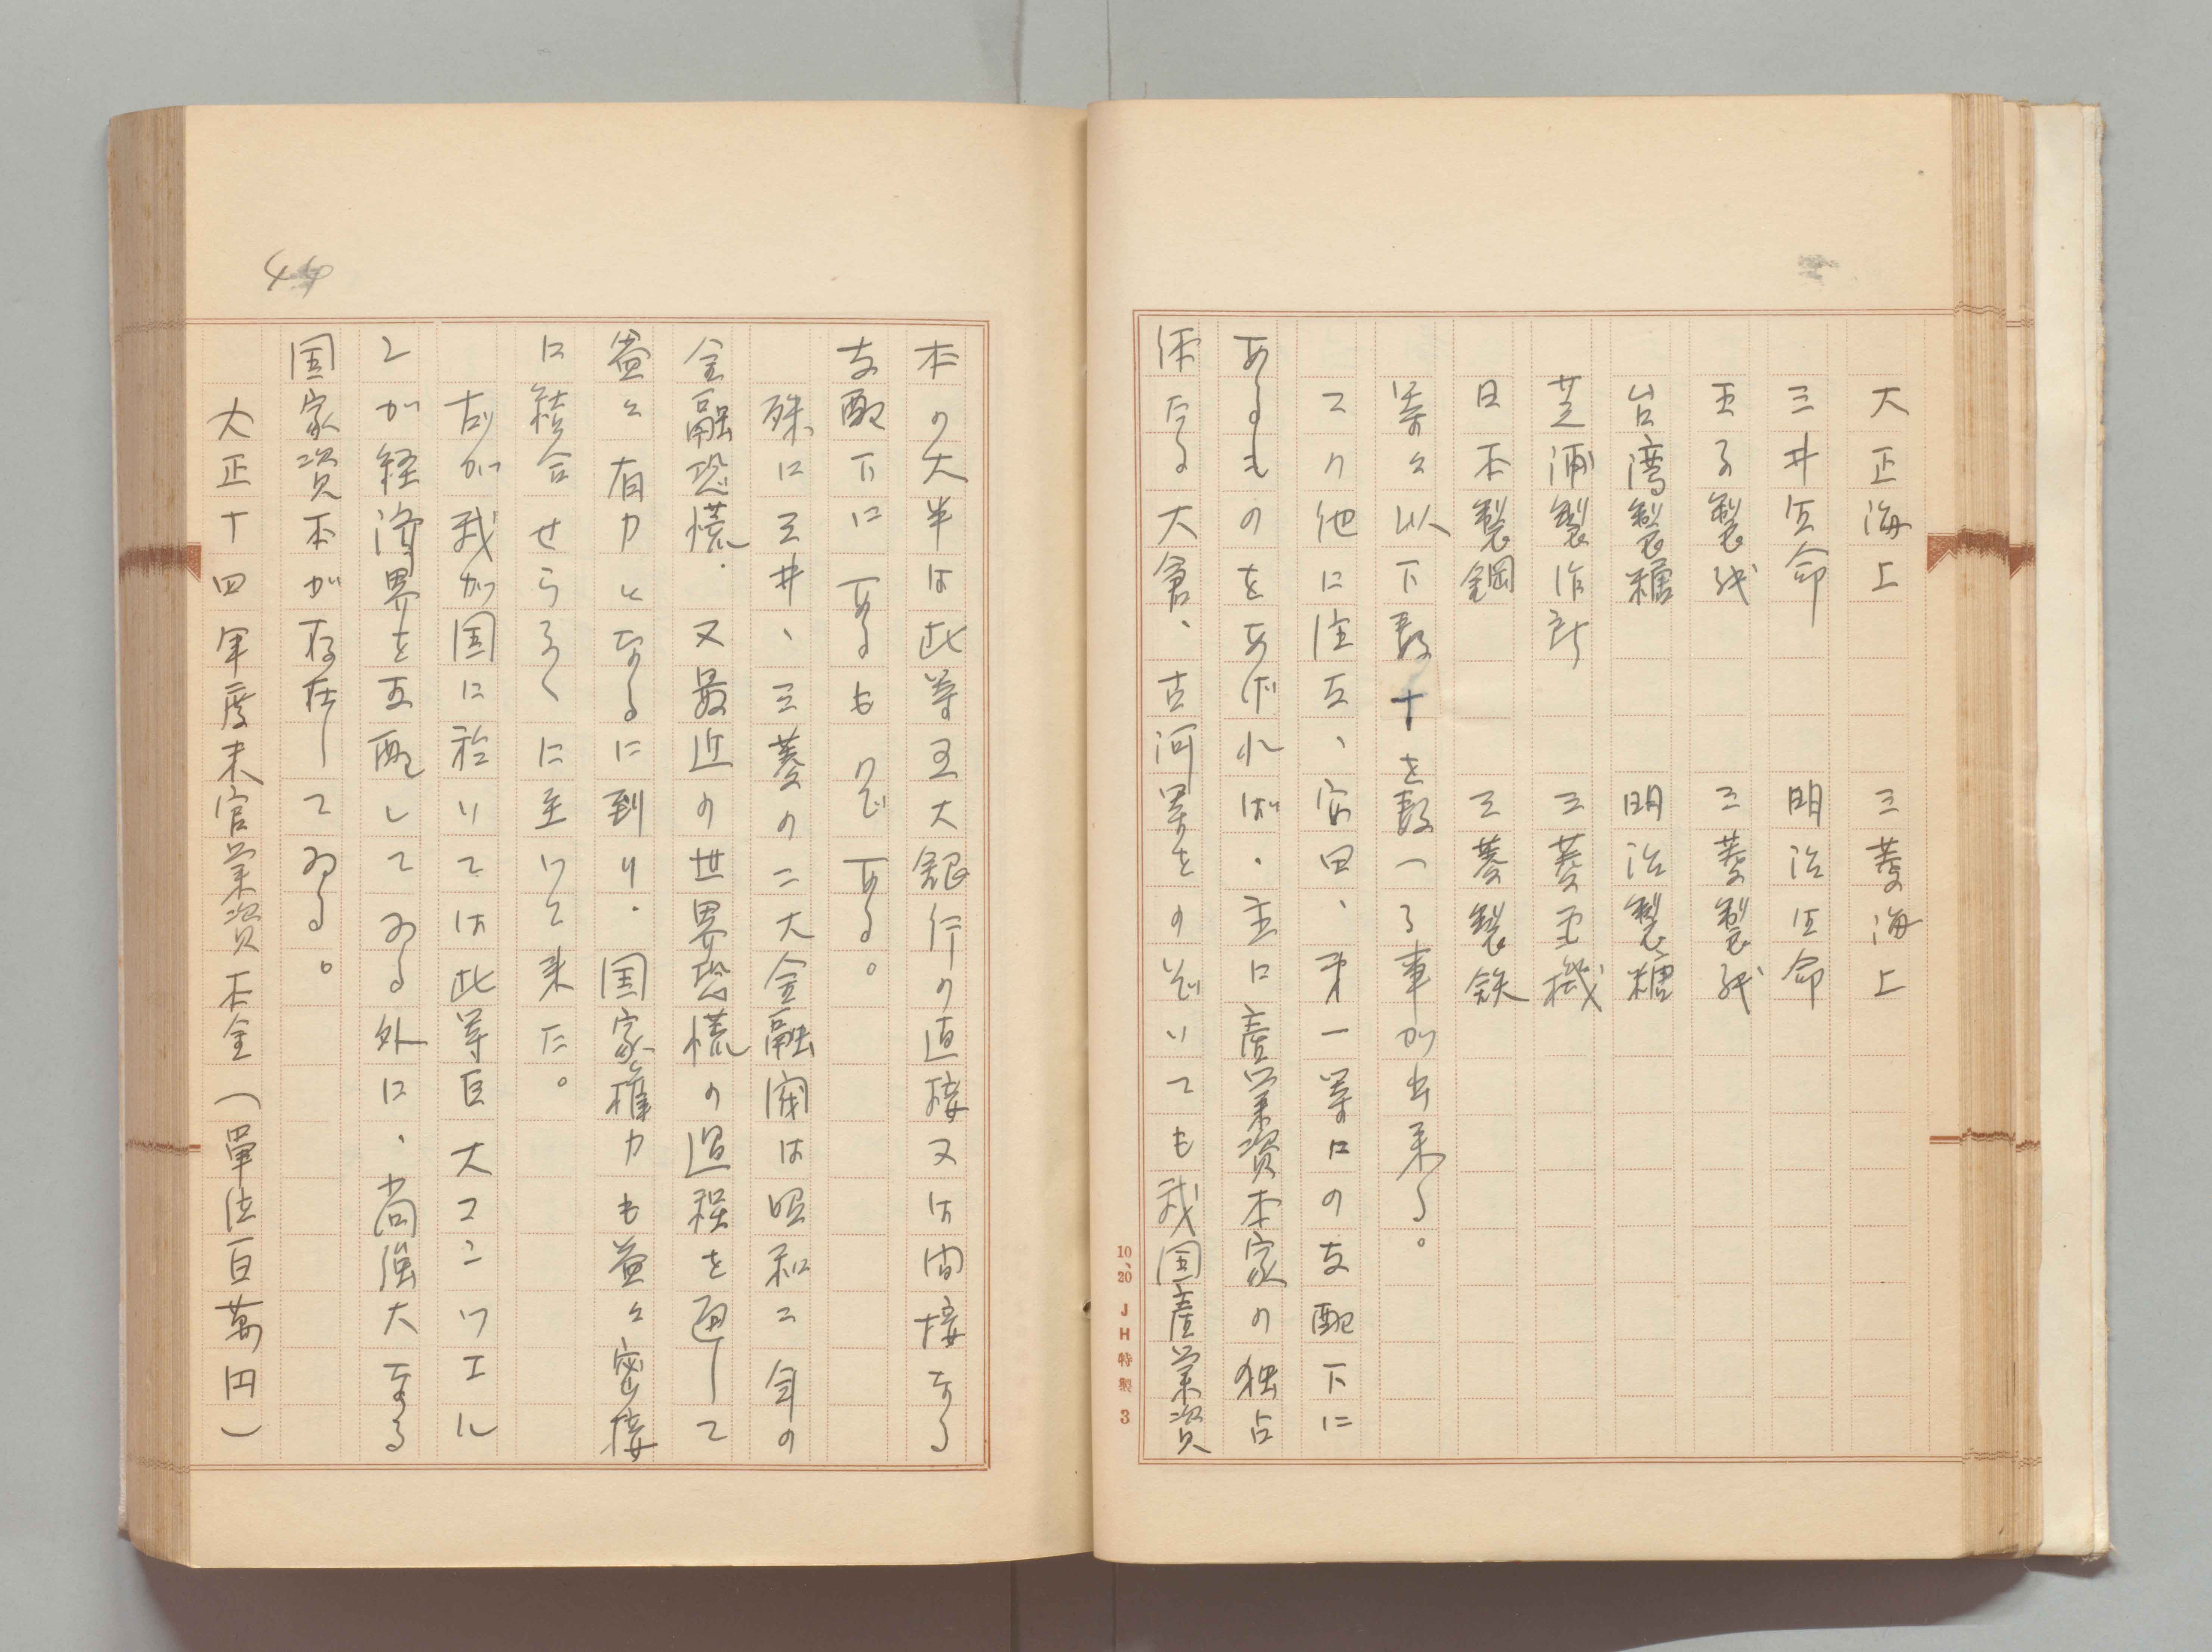 大正海上　三菱海上
三井生命　明治生命
王子製紙　三菱製紙
台湾製糖　明治製糖
芝浦製作所　三菱重機
日本製鋼　三菱製鉄
等々以下数十を数へる事が出来る。
この他に住友、安田、第一等にの支配下に
あるものをあげれば、主に産業資本家の独占
体たる大倉、古河等をのぞいても我国産業資
10、20　JH特製　3
本の大半は此等五大銀行の直接又は間接なる
支配下にあるものである。
殊に三井、三菱の二大金融閥は昭和二年の
金融恐慌、又最近の世界恐慌の過程を通して
益々有力となるに到り、国家権力も益々密接
に結合せらるゝに至って来た。
故が我が国に於いては此等巨大コンツエル
ンが経済界を支配してゐる外に、尚強大なる
国家資本が存在してゐる。
大正十四年度末官業資本金（単位百萬円）